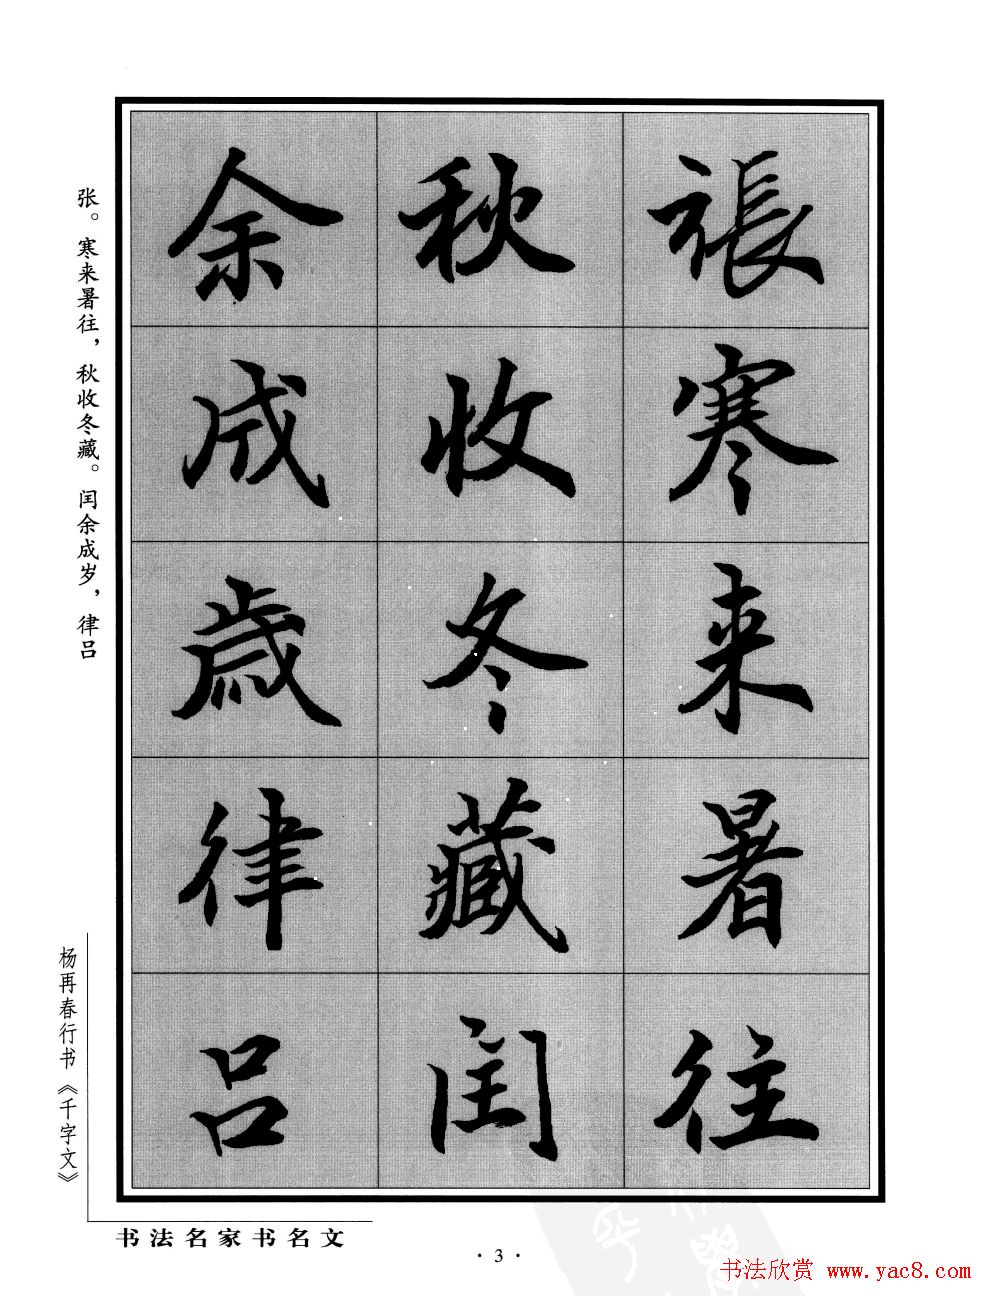 張寒来暑往
秋收冬藏闰
余成歳律吕
张。寒来暑往，秋收冬藏。闰余成岁，律吕
杨再春行书《千字文》
书法名家书名文
·3·
书法欣赏 www.yac8.com